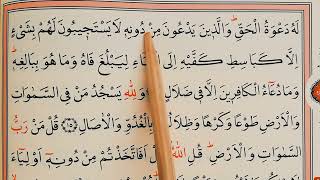 لَهُ دَعْوَةُ الْحَقِّ وَالَّذِينَ يَدْعُونَ مِنْ دُونِهِ لَا يَسْتَجِيبُونَ لَهُمْ بِشَيْءٍ
اِلَّا كَبَاسِطِ كَفَّيْهِ اِلَى الْمَاءِ لِيَبْلُغَ فَاهُ وَمَا هُوَ بِبَالِغِهِ
وَمَا دُعَاءُ الْكَافِرِينَ اِلَّا فِي ضَلَالٍ وَلِلّٰهِ يَسْجُدُ مَنْ فِي السَّمٰوَاتِ
وَالْاَرْضِ طَوْعًا وَكَرْهًا وَظِلَالُهُمْ بِالْغُدُوِّ وَالْاٰصَالِ ﴿١٥﴾ قُلْ مَنْ رَبُّ
السَّمٰوَاتِ وَالْاَرْضِ قُلِ اللّٰهُ قُلْ اَفَاتَّخَذْتُمْ مِنْ دُونِهِ اَوْلِيَاءَ